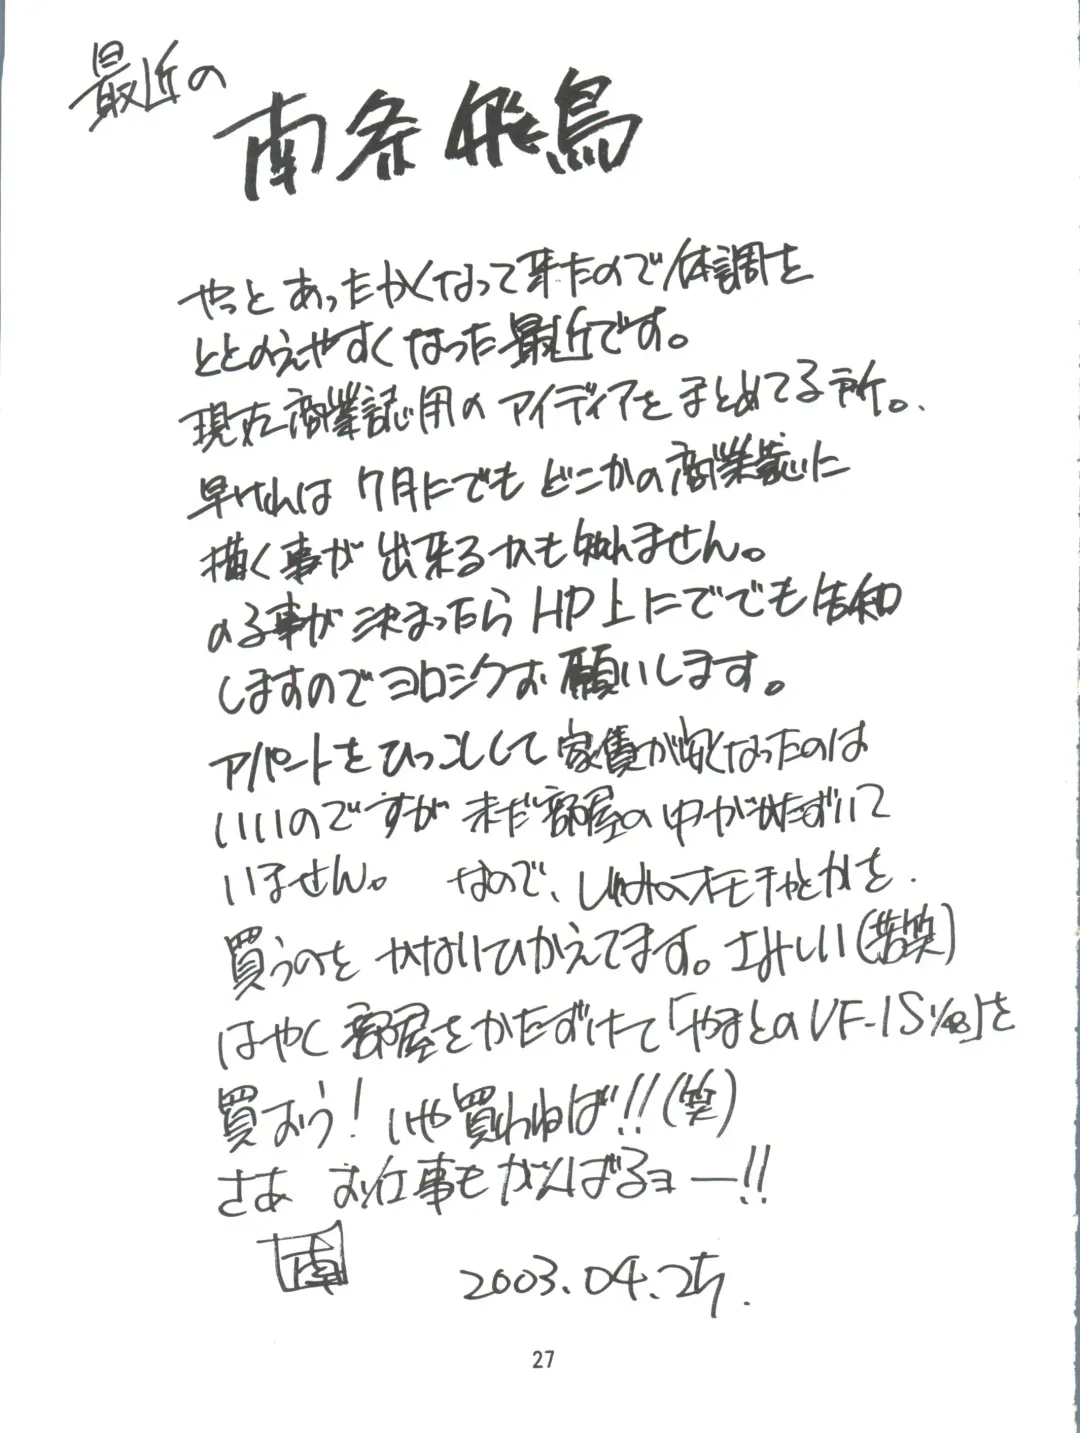 最近の
南条飛鳥
やっとあったかくなって来たので体調を
ととのえやすくなった最近です。
現在商業誌用のアイディアをまとめてる所。
早ければ7月にでもどこかの商業誌に
描く事が出来るかも知れません。
のる事が決まったらHP上にででも告知
しますのでヨロシクお願いします。
アパートをひっこしして家賃が安くなったのは
いいのですが未だ部屋の中がかたずいて
いません。 なので、しゅみのオモチャとかを
買うのをかないひかえてます。さみしい(苦笑)
はやく部屋をかたずけて「やまとのVF-1S 1/48」を
買おう!いや買わねば!!(笑)
さあ お仕事もがんばるヨー!!
南
2003.04.25.
27